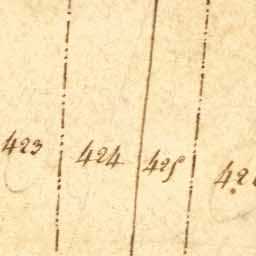 423 424 425